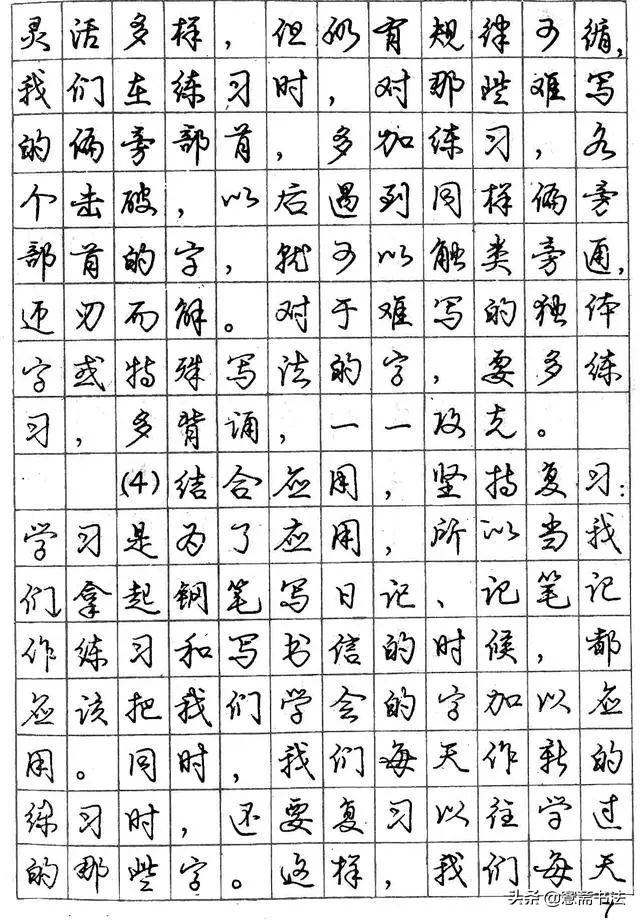 灵活多样，但仍有规律可循，
我们在练习时，对那些难写
的偏旁部首，多加练习，各
个击破，以后遇到同样偏旁
部首的字，就可以触类旁通，
迎刃而解。对于难写的独体
字或特殊写法的字，要多练
习，多背诵，一一攻克。
(4)结合应用，坚持复习：
学习是为了应用，所以当我
们拿起钢笔写日记、记笔记
作练习和写书信的时候，都
应该把我们学会的字加以应
用。同时，我们每天作新的
练习时，还要复习以往学过
的那些字。这样，我们每天
头条@寋斋书法
7